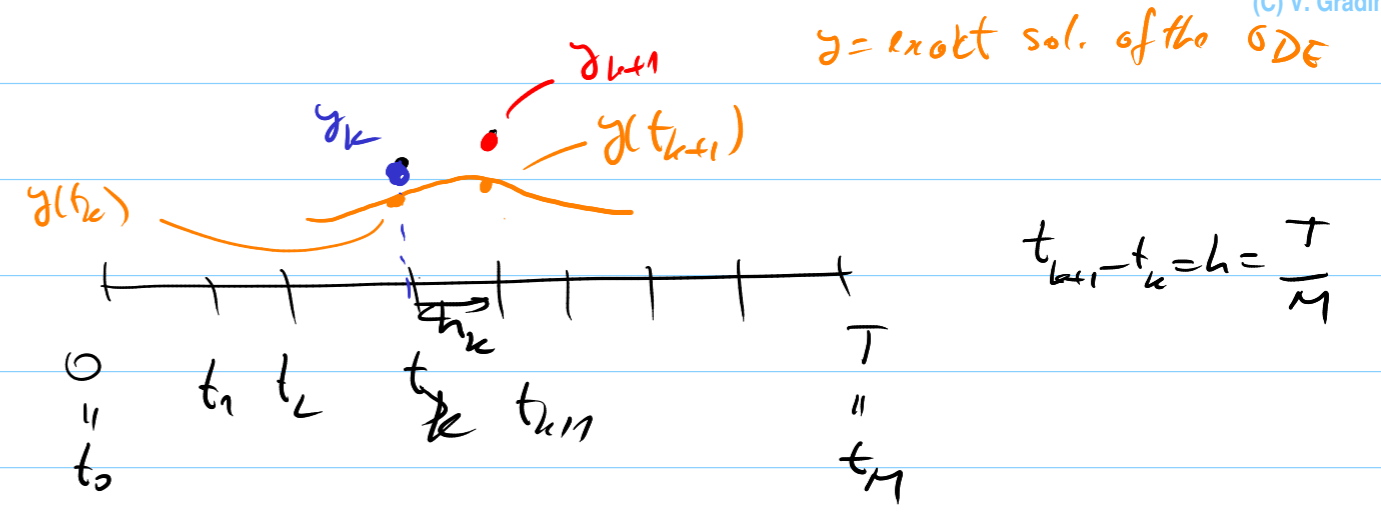 (C) V. Gradin
y = exakt sol. of the ODE
y_{k+1}
y_k
y(t_{k+1})
y(t_k)
t_{k+1} - t_k = h = T/M
h_k
0 t_1 t_2 t_k t_{k+1} T
= =
t_0 t_M